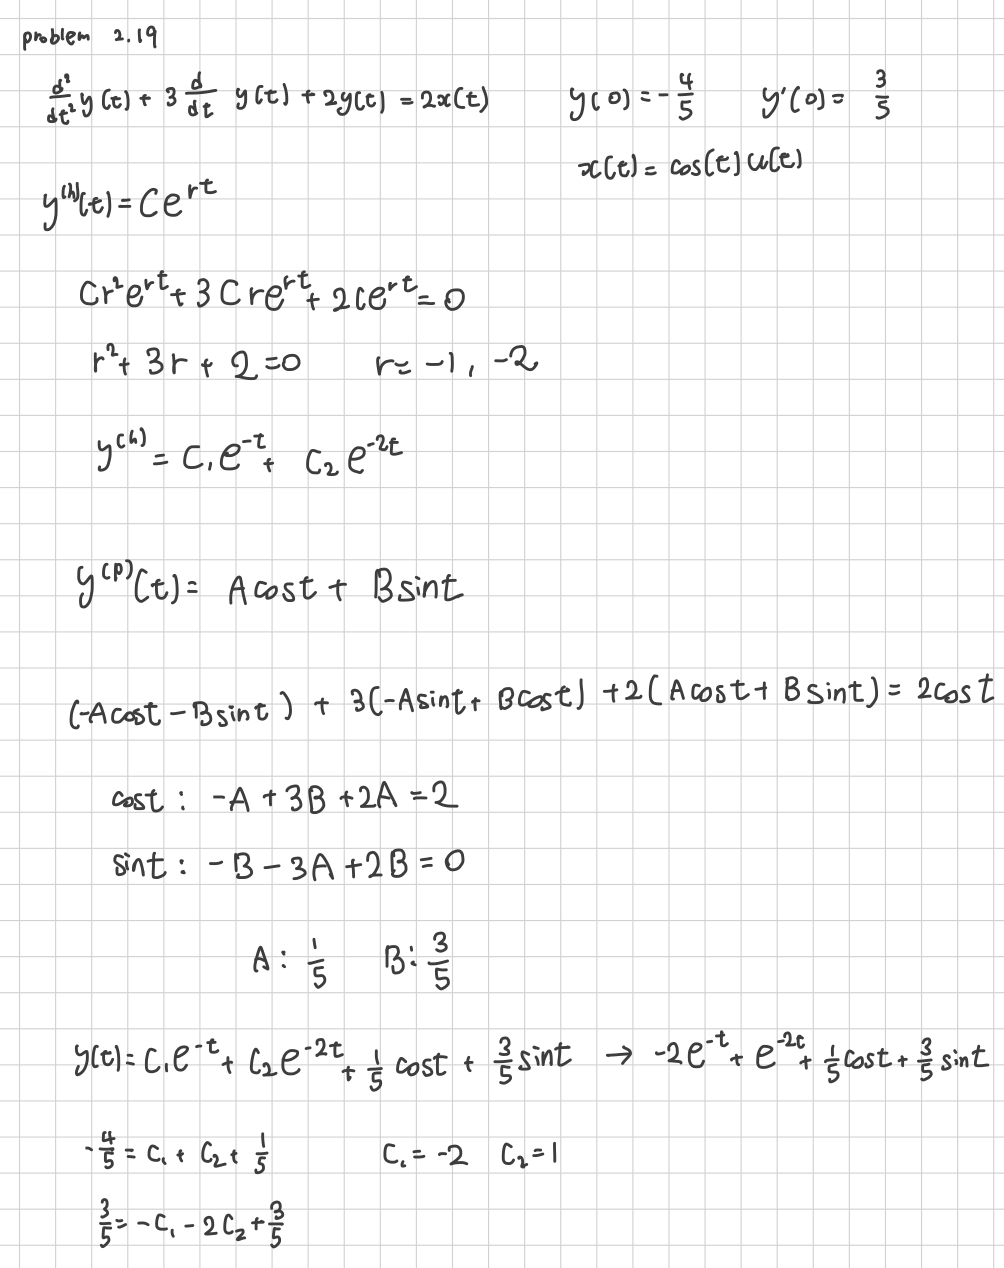 problem 2.19
d²/dt² y(t) + 3 d/dt y(t) + 2y(t) = 2x(t) y(0) = -4/5 y'(0) = 3/5
x(t) = cos(t)u(t)
y^(h)(t) = Ce^rt
Cr²e^rt + 3Cre^rt + 2Ce^rt = 0
r² + 3r + 2 = 0 r = -1, -2
y^(h) = C₁e^-t + C₂e^-2t
y^(p)(t) = Acost + Bsint
(-Acost - Bsint) + 3(-Asint + Bcost) + 2(Acost + Bsint) = 2cost
cost : -A + 3B + 2A = 2
sint : -B - 3A + 2B = 0
A : 1/5 B : 3/5
y(t) = C₁e^-t + C₂e^-2t + 1/5 cost + 3/5 sint → -2e^-t + e^-2t + 1/5 cost + 3/5 sint
-4/5 = C₁ + C₂ + 1/5 C₁ = -2 C₂ = 1
3/5 = -C₁ - 2C₂ + 3/5